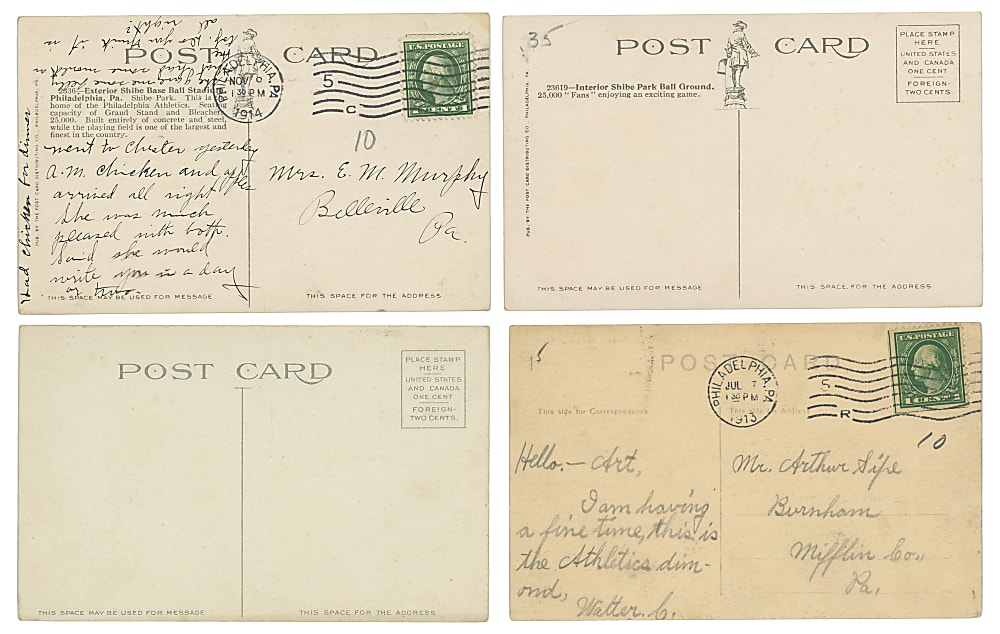 POST CARD
U.S. POSTAGE
PHILADELPHIA, PA.
NOV
1 30 PM
1914
5
C
10
all right?
Exterior Shibe Base Ball Stadium,
Philadelphia, Pa. Shibe Park. This is
home of the Philadelphia Athletics. Seating
capacity of Grand Stand and Bleachers
25,000. Built entirely of concrete and steel,
while the playing field is one of the largest and
finest in the country.
PUB. BY THE POST CARD DISTRIBUTING CO., PHILADELPHIA, PA.
Had chicken for dinner
went to Chester yesterday
A.M. Chicken and apples
arrived all right
She was much
pleased with both.
Said she would
write you in a day
or two.
Mrs. E. M. Murphy
Belleville
Pa.
THIS SPACE MAY BE USED FOR MESSAGE
THIS SPACE FOR THE ADDRESS
35
POST CARD
PLACE STAMP
HERE
UNITED STATES
AND CANADA
ONE CENT
FOREIGN-
TWO CENTS.
23619—Interior Shibe Park Ball Ground.
25,000 "Fans" enjoying an exciting game.
PUB. BY THE POST CARD DISTRIBUTING CO., PHILADELPHIA, PA.
THIS SPACE MAY BE USED FOR MESSAGE
THIS SPACE, FOR THE ADDRESS
POST CARD
PLACE STAMP
HERE
UNITED STATES
AND CANADA
ONE CENT
FOREIGN-
TWO CENTS.
THIS SPACE MAY BE USED FOR MESSAGE
THIS SPACE FOR THE ADDRESS
15
POST CARD
PHILADELPHIA, PA.
JUL 7
1 30 PM
1913
S
R
U.S. POSTAGE
10
This side for Correspondence
This side for Address
Hello.— Art,
I am having
a fine time, this is
the Athletics dim-
ond,
Walter C.
Mr. Arthur Sipe
Burnham
Mifflin Co.,
Pa.